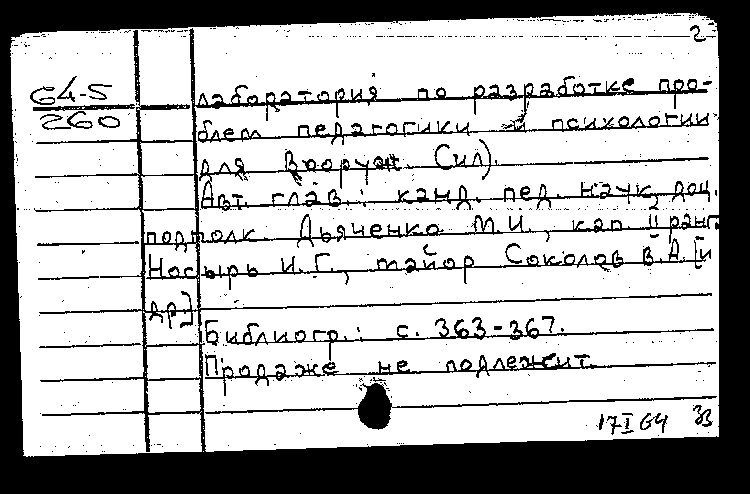 2
64-5
260
лаборатория по разработке про-
блем педагогики и психологии
для Вооруж. Сил).
Авт. глав.: канд. пед. наук, доц.
подполк. Дьяченко М.И., кап II ранг.
Носырь И.Г., майор Соколов В.А. [и
др.]
Библиогр.: с. 363-367.
Продаже не подлежит.
17 I 64